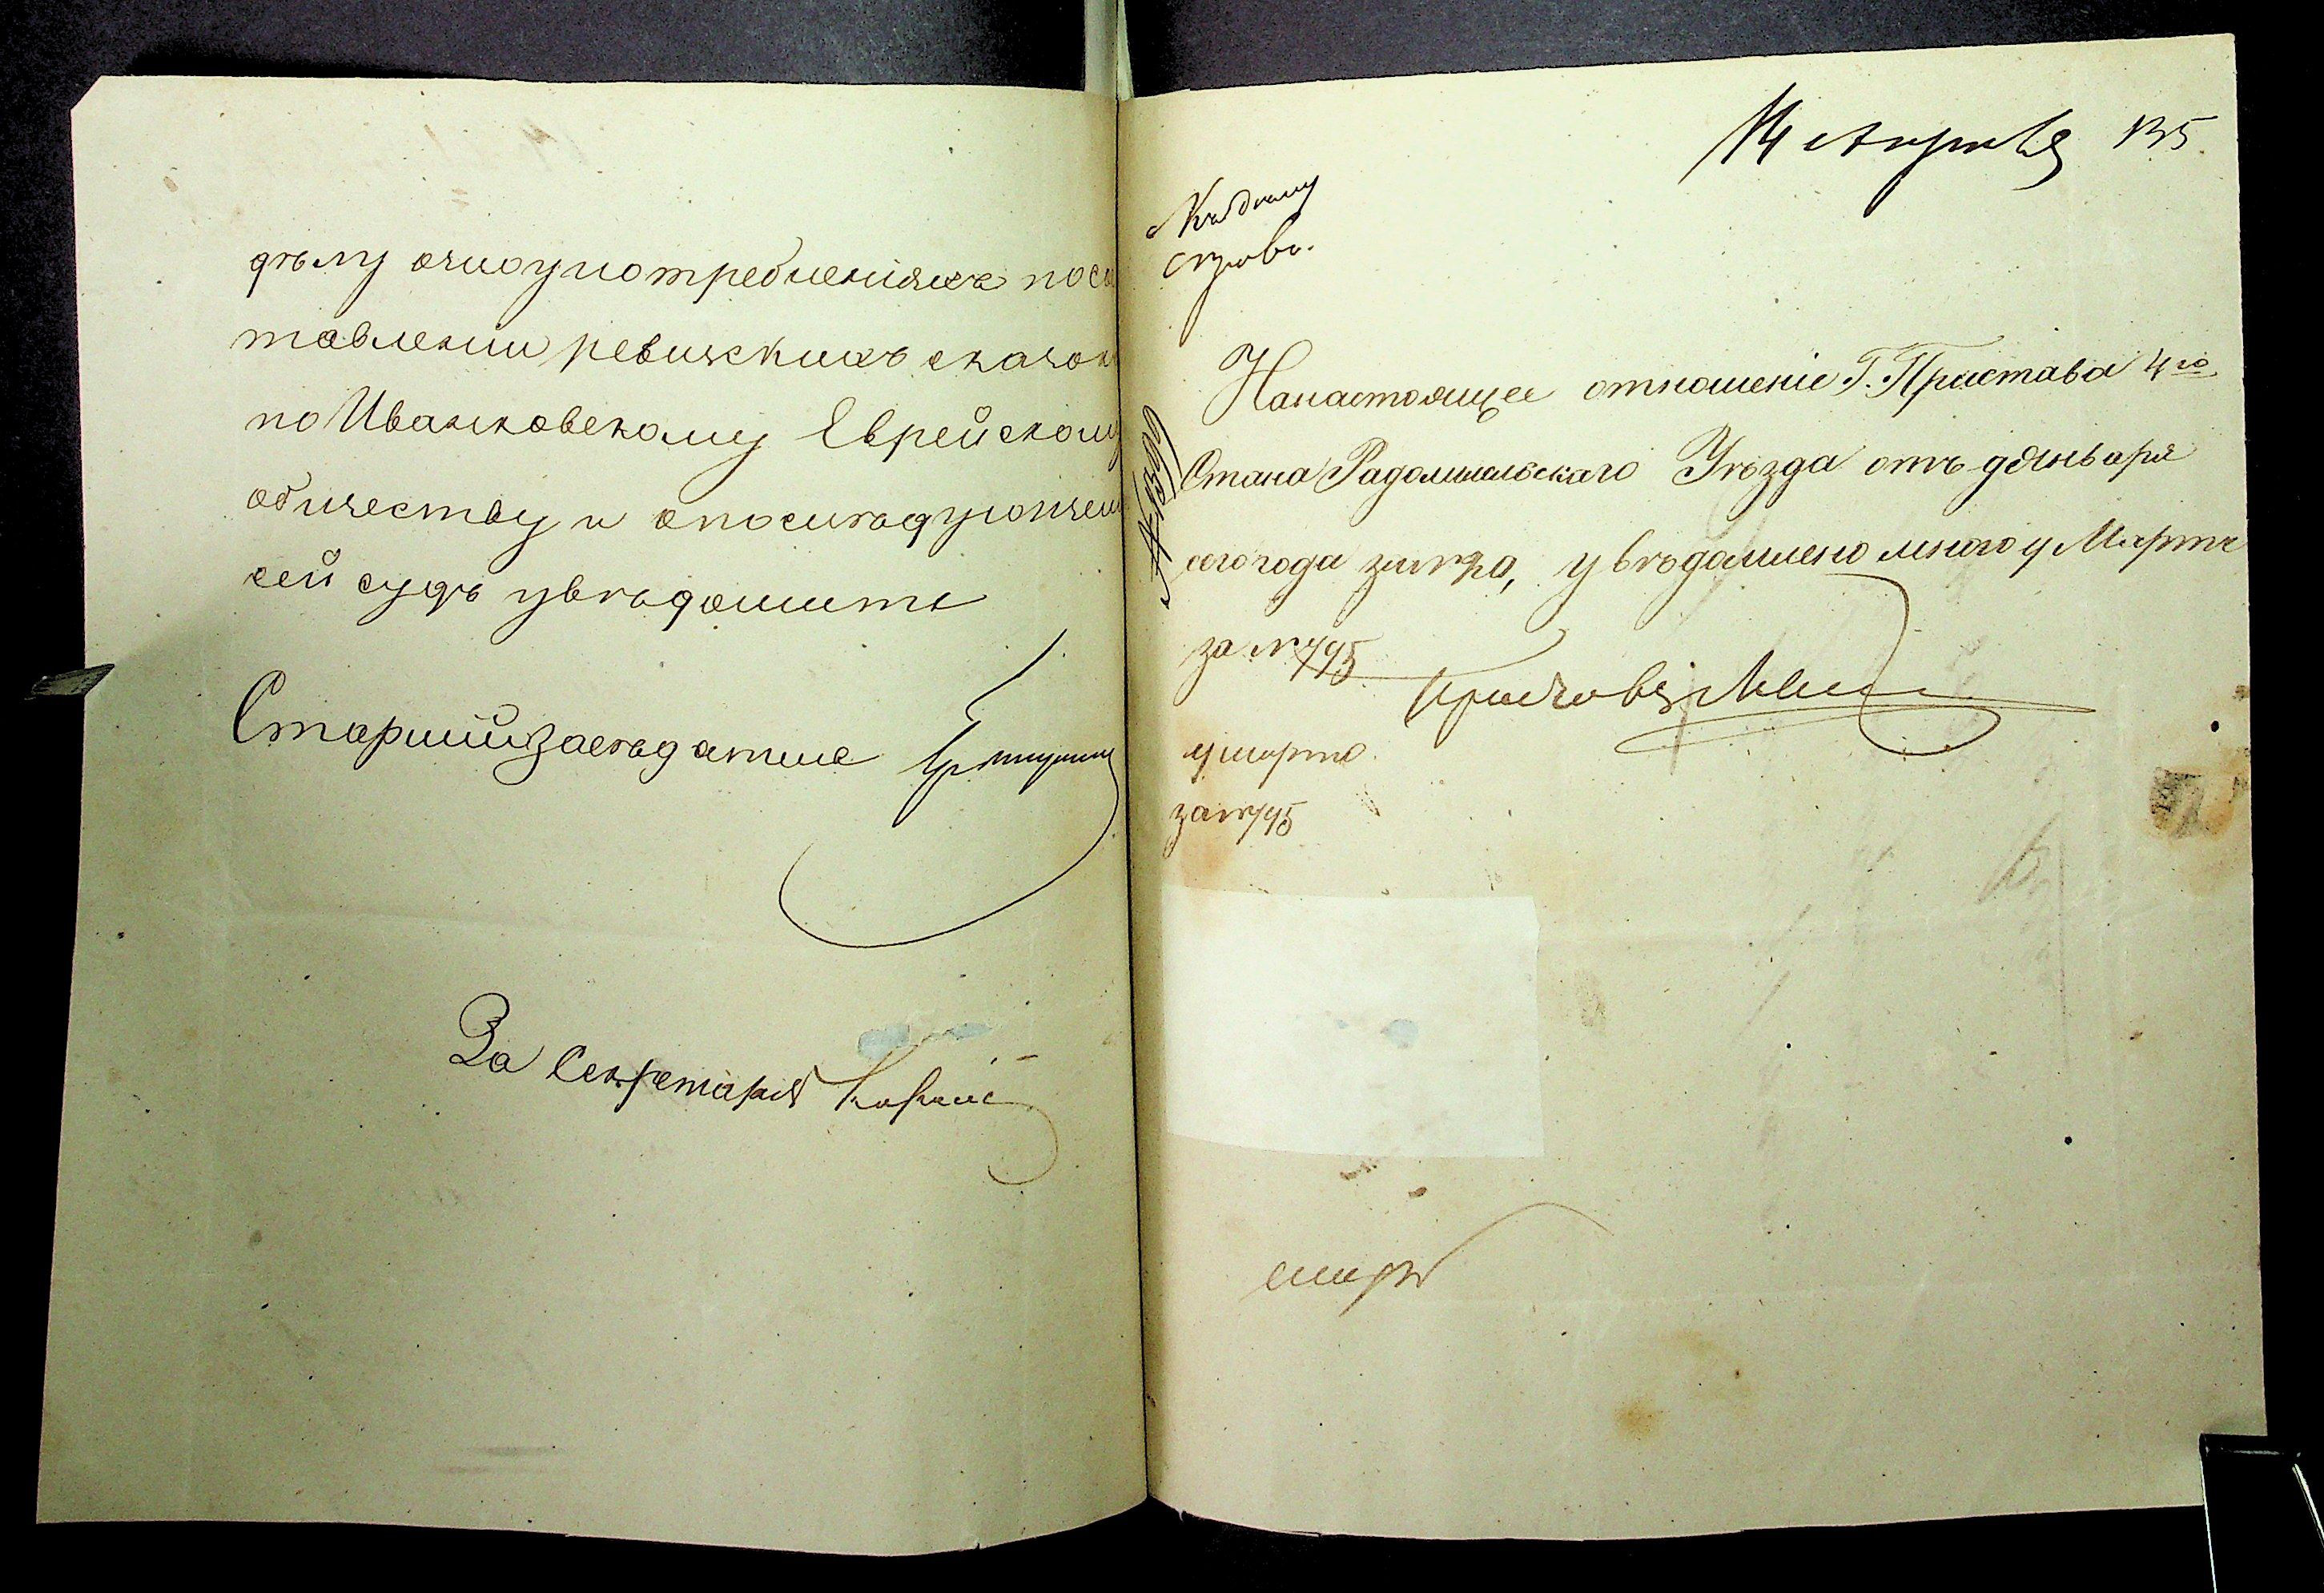 дѣлу озлоупотребленіяхъ посо
тавленіи ревижскихъ сказок
по Иванковскому Еврейскому
обществу и опослѣдующем
сей судъ увѣдомить
Старшій засѣдатель
За Секретаря
14 Апрѣля 135
Къ дѣлу
Настоящее отношеніе Г. Пристава 4го
Стана Радомысльскаго Уѣзда отъ 9 Января
сего года за № 20, увѣдомлено мною 4 Марта
за № 495
Приставъ
4 марта
за № 495